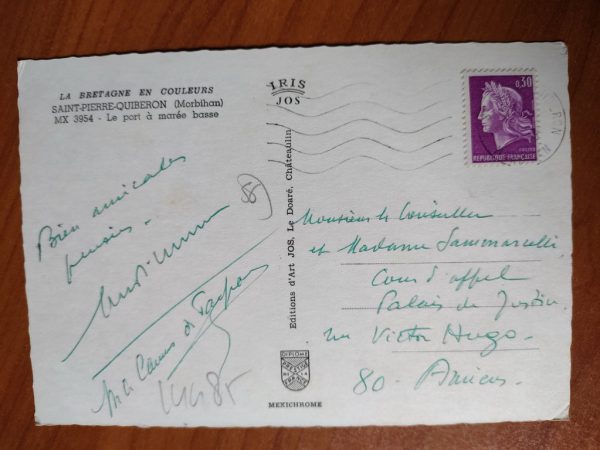 LA BRETAGNE EN COULEURS
SAINT-PIERRE-QUIBERON (Morbihan)
MX 3954 - Le port à marée basse
Bien amicales
pensées.
85
IRIS
JOS
Editions d'Art JOS, Le Doaré, Châteaulin
MEXICHROME
0,30
REPUBLIQUE FRANÇAISE
Monsieur le Conseiller
et Madame Sammarcelli
Cour d'appel
Palais de Justice
rue Victor Hugo.
80 - Amiens.